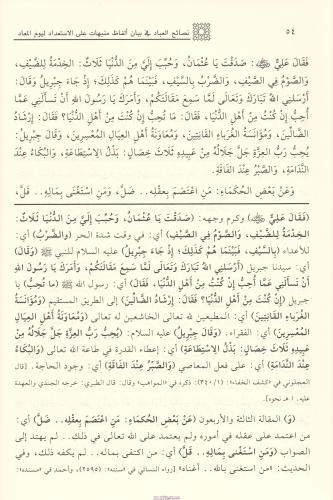 ٥٤ نصائح العباد في بيان ألفاظ منبهات على الاستعداد ليوم المعاد
فَقَالَ عَلِيٌّ ﷺ: صَدَقْتَ يَا عُثْمَانُ، وَحُبِّبَ إِلَيَّ مِنَ الدُّنْيَا ثَلَاثٌ: الخِدْمَةُ لِلضَّيْفِ،
وَالصَّوْمُ فِي الصَّيْفِ، وَالضَّرْبُ بِالسَّيْفِ، فَبَيْنَمَا هُمْ كَذَلِكَ؛ إِذْ جَاءَ جِبْرِيلُ وَقَالَ:
أَرْسَلَنِي اللهُ تَبَارَكَ وَتَعَالَى لَمَّا سَمِعَ مَقَالَتَكُمْ، وَأَمَرَكَ يَا رَسُولَ اللهِ أَنْ تَسْأَلَنِي عَمَّا
أُحِبُّ إِنْ كُنْتُ مِنْ أَهْلِ الدُّنْيَا، فَقَالَ: مَا تُحِبُّ إِنْ كُنْتَ مِنْ أَهْلِ الدُّنْيَا؟ فَقَالَ: إِرْشَادُ
الضَّالِّينَ، وَمُؤَانَسَةُ الغُرَبَاءِ القَانِتِينَ، وَمُعَاوَنَةُ أَهْلِ العِيَالِ المُعْسِرِينَ، وَقَالَ جِبْرِيلُ:
يُحِبُّ رَبُّ العِزَّةِ جَلَّ جَلَالُهُ مِنْ عَبِيدِهِ ثَلَاثَ خِصَالٍ: بَذْلُ الِاسْتِطَاعَةِ، وَالبُكَاءُ عِنْدَ
النَّدَامَةِ، وَالصَّبْرُ عِنْدَ الفَاقَةِ.
وَعَنْ بَعْضِ الحُكَمَاءِ: مَنِ اعْتَصَمَ بِعَقْلِهِ.. ضَلَّ، وَمَنِ اسْتَغْنَى بِمَالِهِ.. قَلَّ،
(فَقَالَ عَلِيٌّ ﷺ) وكرم وجهه: (صَدَقْتَ يَا عُثْمَانُ، وَحُبِّبَ إِلَيَّ مِنَ الدُّنْيَا ثَلَاثٌ:
الخِدْمَةُ لِلضَّيْفِ، وَالصَّوْمُ فِي الصَّيْفِ) أي: في وقت شدة الحر (وَالضَّرْبُ) أي:
للأعداء (بِالسَّيْفِ، فَبَيْنَمَا هُمْ كَذَلِكَ؛ إِذْ جَاءَ جِبْرِيلُ) عليه السلام للنبي ﷺ (وَقَالَ)
أي: سيدنا جبريل (أَرْسَلَنِي اللهُ تَبَارَكَ وَتَعَالَى لَمَّا سَمِعَ مَقَالَتَكُمْ، وَأَمَرَكَ يَا رَسُولَ اللهِ
أَنْ تَسْأَلَنِي عَمَّا أُحِبُّ إِنْ كُنْتُ مِنْ أَهْلِ الدُّنْيَا، فَقَالَ) أي: رسول الله ﷺ (مَا تُحِبُّ) يا
جبريل (إِنْ كُنْتَ مِنْ أَهْلِ الدُّنْيَا؟ فَقَالَ: إِرْشَادُ الضَّالِّينَ) إلى الطريق المستقيم (وَمُؤَانَسَةُ
الغُرَبَاءِ القَانِتِينَ) أي: المطيعين لله تعالى الخاشعين له تعالى (وَمُعَاوَنَةُ أَهْلِ العِيَالِ
المُعْسِرِينَ) أي: الفقراء. (وَقَالَ جِبْرِيلُ) عليه السلام: (يُحِبُّ رَبُّ العِزَّةِ جَلَّ جَلَالُهُ مِنْ
عَبِيدِهِ ثَلَاثَ خِصَالٍ: بَذْلُ الِاسْتِطَاعَةِ) أي: إعطاء القدرة في طاعة الله تعالى (وَالبُكَاءُ
عِنْدَ النَّدَامَةِ) أي: على فعل المعاصي (وَالصَّبْرُ عِنْدَ الفَاقَةِ) أي: وجود الحاجة. [قال
العجلوني في «كشف الخفاء»: (١/ ٣٤٠): ذكره في «المواهب» وقال: قال الطبري: خرجه الجندي والعهدة
عليه. اهـ نحوه].
(وَ) المقالة الثالثة والأربعون (عَنْ بَعْضِ الحُكَمَاءِ: مَنِ اعْتَصَمَ بِعَقْلِهِ.. ضَلَّ) أي:
من اعتمد على عقله في أموره ولم يعتمد على الله تعالى في ذلك.. لم يهتد إلى
الصواب (وَمَنِ اسْتَغْنَى بِمَالِهِ.. قَلَّ) أي: من اكتفى بماله.. لم يكفه ذلك، وفي
الحديث: «من استغنى بالله.. أغناه» [رواه النسائي في سننه» (٢٥٩٥)، وأحمد في «مسنده»: